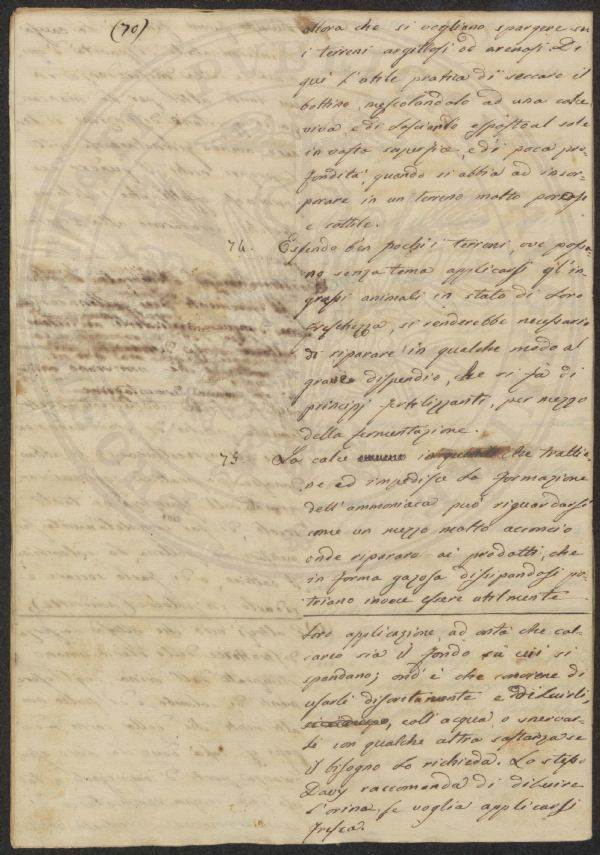 (70)
allora che si vogliano spargere su
i terreni argillosi od arenosi. Di
qui l'utile pratica di seccare il
bottino, mescolandolo ad una calce
viva, e di lasciarlo esposto al sole
in vasta superficie, e di poca pro-
fondità, quando si abbia ad incor-
porare in un terreno molto poroso
e sottile.
74. Essendo ben pochi i terreni, ove posso-
no senza tema applicarsi gl'in-
grassi animali in stato di loro
freschezza, si renderebbe necessario
di riparare in qualche modo al
grave dispendio, che si fà di
principj fertilizzanti, per mezzo
della fermentazione.
75. La calce in che trattie-
ne ed impedisce la formazione
dell'ammoniaca può riguardarsi
come un mezzo molto acconcio
onde riparare ai prodotti, che
in forma gazosa dissipandosi po-
triano invece essere utilmente
loro applicazione, ad onta che cal-
careo sia il fondo su cui si
spandano; ond'è che conviene di
usarli discretamente e diluirli,
coll'acqua, o snervar-
li con qualche altra sostanza se
il bisogno lo richieda. Lo stesso
Davy raccomanda di diluire
l'orina, se voglia applicarsi
fresca.